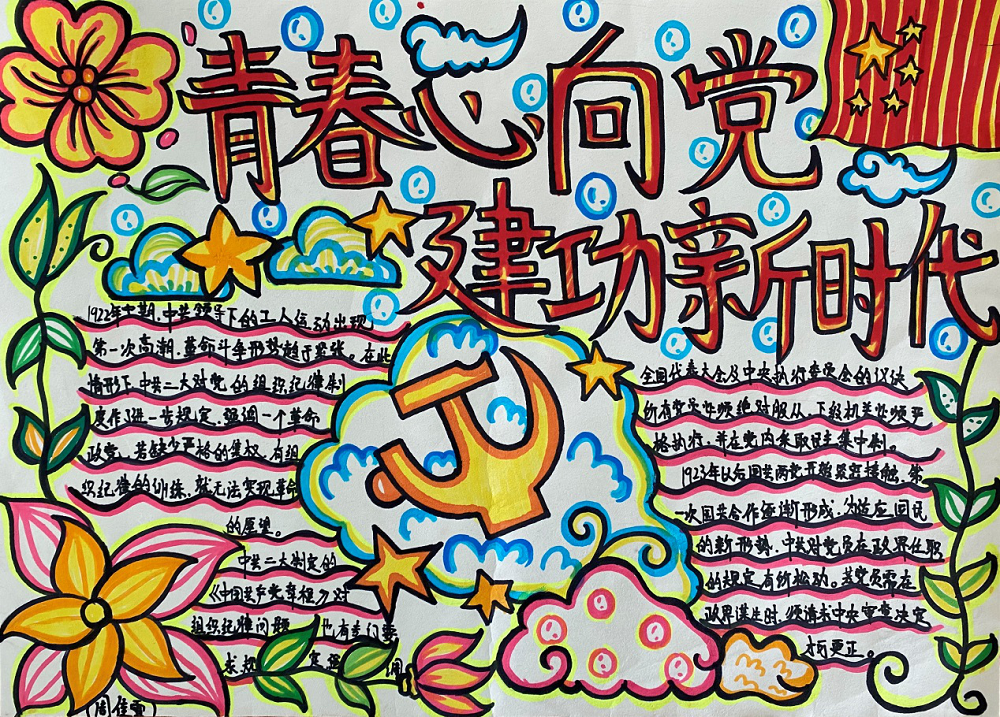 青春心向党
建功新时代
1922年中期，中共领导下的工人运动出现
第一次高潮，革命斗争形势趋于紧张。在此
情形下，中共二大对党的组织纪律制
度作了进一步规定，强调一个革命
政党，若缺少严格的集权、有组
织纪律的训练，就无法实现革命
的愿望。
中共二大制定的
《中国共产党章程》对
组织纪律问题 也有专门要
求 定
全国代表大会及中央执行委员会的议决
所有党员必须绝对服从，下级机关必须严
格执行，并在党内采取民主集中制。
1923年以后国共两党开始紧密接触，第
一次国共合作逐渐形成，为适应国民
的新形势，中共对党员在政界任职
的规定有所松动。若党员需在
政界谋生时，须请求中央审查决定
方可更正。
周佳雪